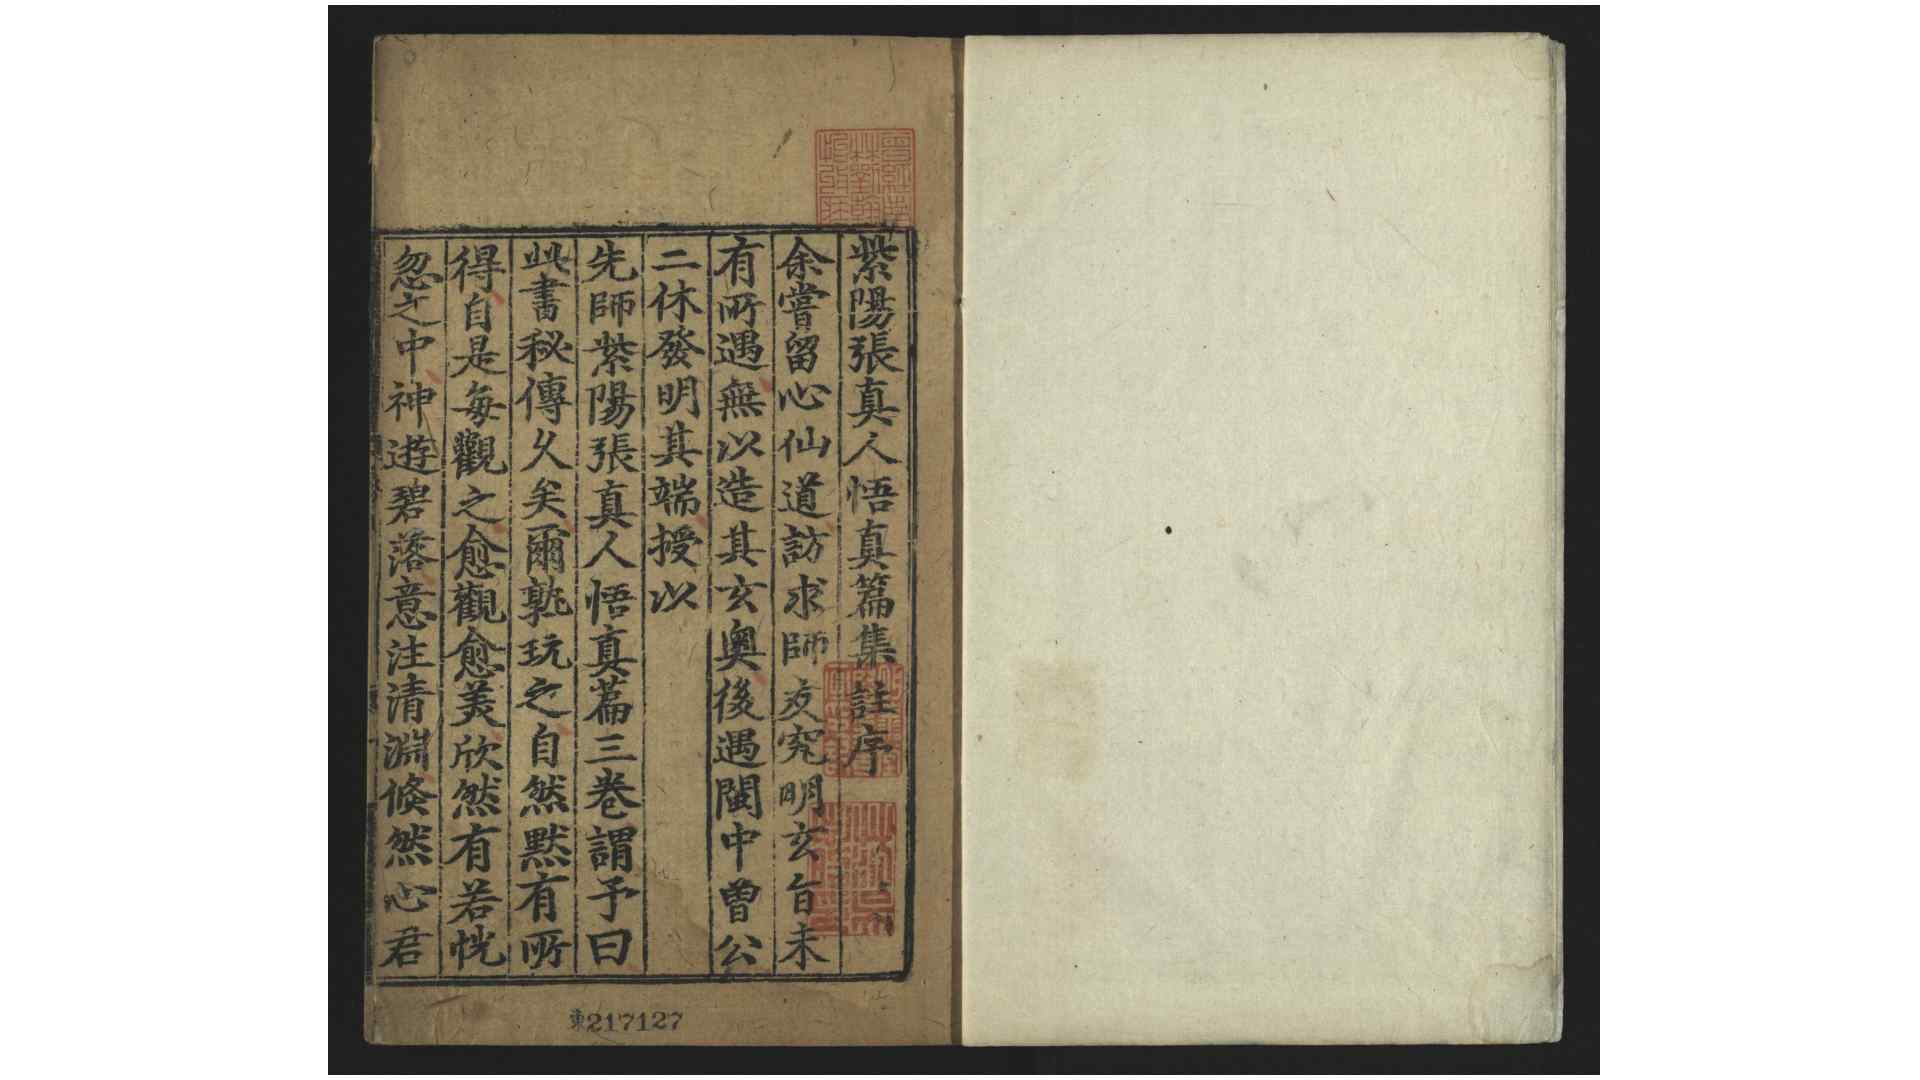 紫陽張真人悟真篇集註序
余嘗留心仙道訪求師友究明玄旨未
有所遇無以造其玄奧後遇閩中曾公
二休發明其端授以
先師紫陽張真人悟真篇三卷謂予曰
此書秘傳久矣爾孰玩之自然黙有所
得自是每觀之愈觀愈美欣然有若恍
忽之中神遊碧落意注清淵倏然心君
東217127